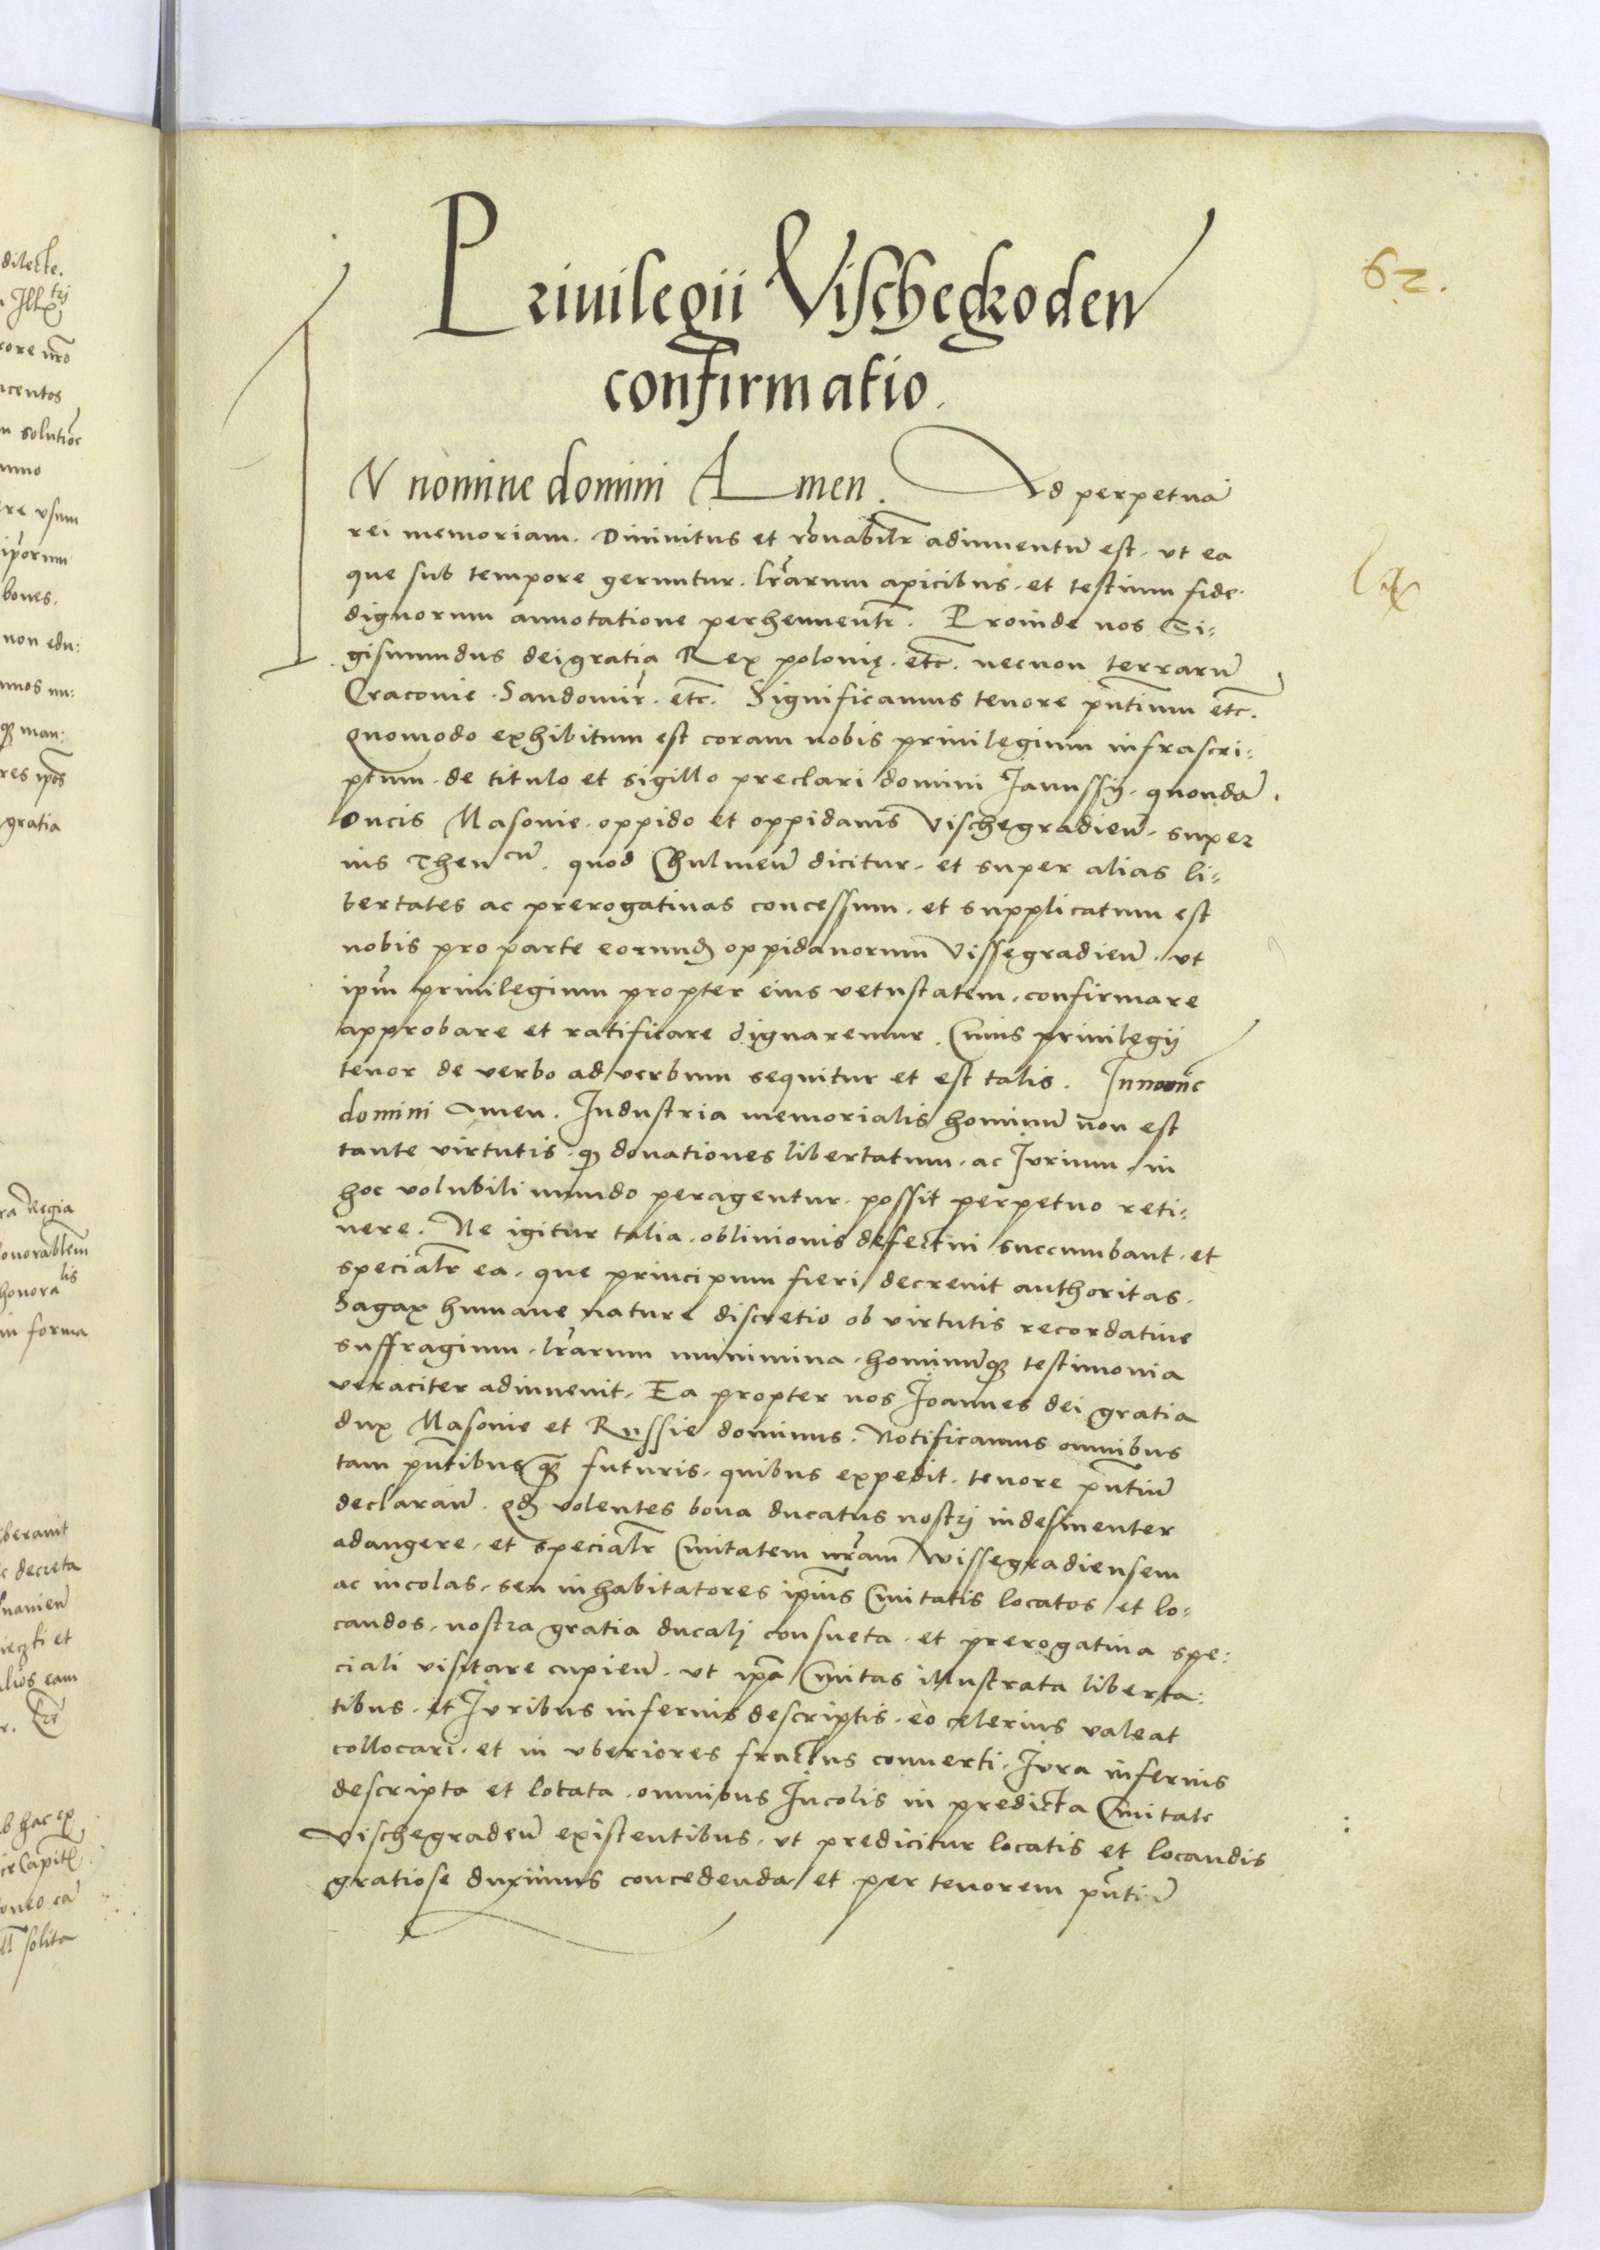 62.
Priuilegii Vischegroden
confirmatio.
IN nomine domini Amen. Ad perpetuā
rei memoriam. Diuinitus et rōnabilr̄ adinuentū est. ut ea
que sub tempore geruntur. lr̄arum apicibus. et testium fide-
dignorum annotatione perhennentr̄. Proinde nos Si:
gismundus dei gratia Rex polonię. etc̄. necnon terrarū
Cracouie. Sandomir̄. etc̄. Significamus tenore pn̄tium etc̄.
Quomodo exhibitum est coram nobis priuilegium infrascri:
ptum. de titulo et sigillo preclari domini Janussij. quondā
Ducis Masouie. oppido et oppidanis Vischegradien̄. super
ius Theucū. quod Chulmen̄ dicitur. et super alias li:
bertates ac prerogatiuas concessum. et supplicatum est
nobis pro parte eorundꝫ oppidanorum Vissegradien̄. ut
ip̄m priuilegium propter eius vetustatem. confirmare
approbare et ratificare dignaremur. Cuius priuilegij
tenor de verbo ad verbum sequitur et est talis. In noīe
domini Amen. Industria memorialis hominū non est
tante virtutis. qꝫ donationes libertatum. ac Jurium. in
hoc volubili mundo peragentur. possit perpetuo reti:
nere. Ne igitur talia. obliuionis defectui succumbant. et
specialr̄ ea. que principum fieri decreuit authoritas.
Sagax humane nature discretio ob virtutis recordatiue
suffragium. lr̄arum munimina. hominūqꝫ testimonia
veraciter adinuenit. Ea propter nos Joannes dei gratia
dux Masouie et Russie dominus. Notificamus omnibus
tam pn̄tibus qꝫ futuris. quibus expedit. tenore pn̄tiū
declaran̄. Qdꝫ volentes bona ducatus nostrj indesinenter
adaugere. et specialr̄ Ciuitatem nr̄am Wissegradiensem
ac incolas. seu inhabitatores ip̄ius Ciuitatis locatos et lo:
candos. nostra gratia ducalj consueta. et prerogatiua spe:
ciali visitare cupien̄. ut ip̄a Ciuitas illustrata liberta:
tibus. et Juribus inferius descriptis. eo celerius valeat
collocari. et in vberiores fructus conuerti. Jura inferius
descripta et locata. omnibus Incolis in predicta Ciuitate
Vischegraden̄ existentibus. ut predicitur locatis et locandis
gratiose duximus concedenda et per tenorem pn̄tiū